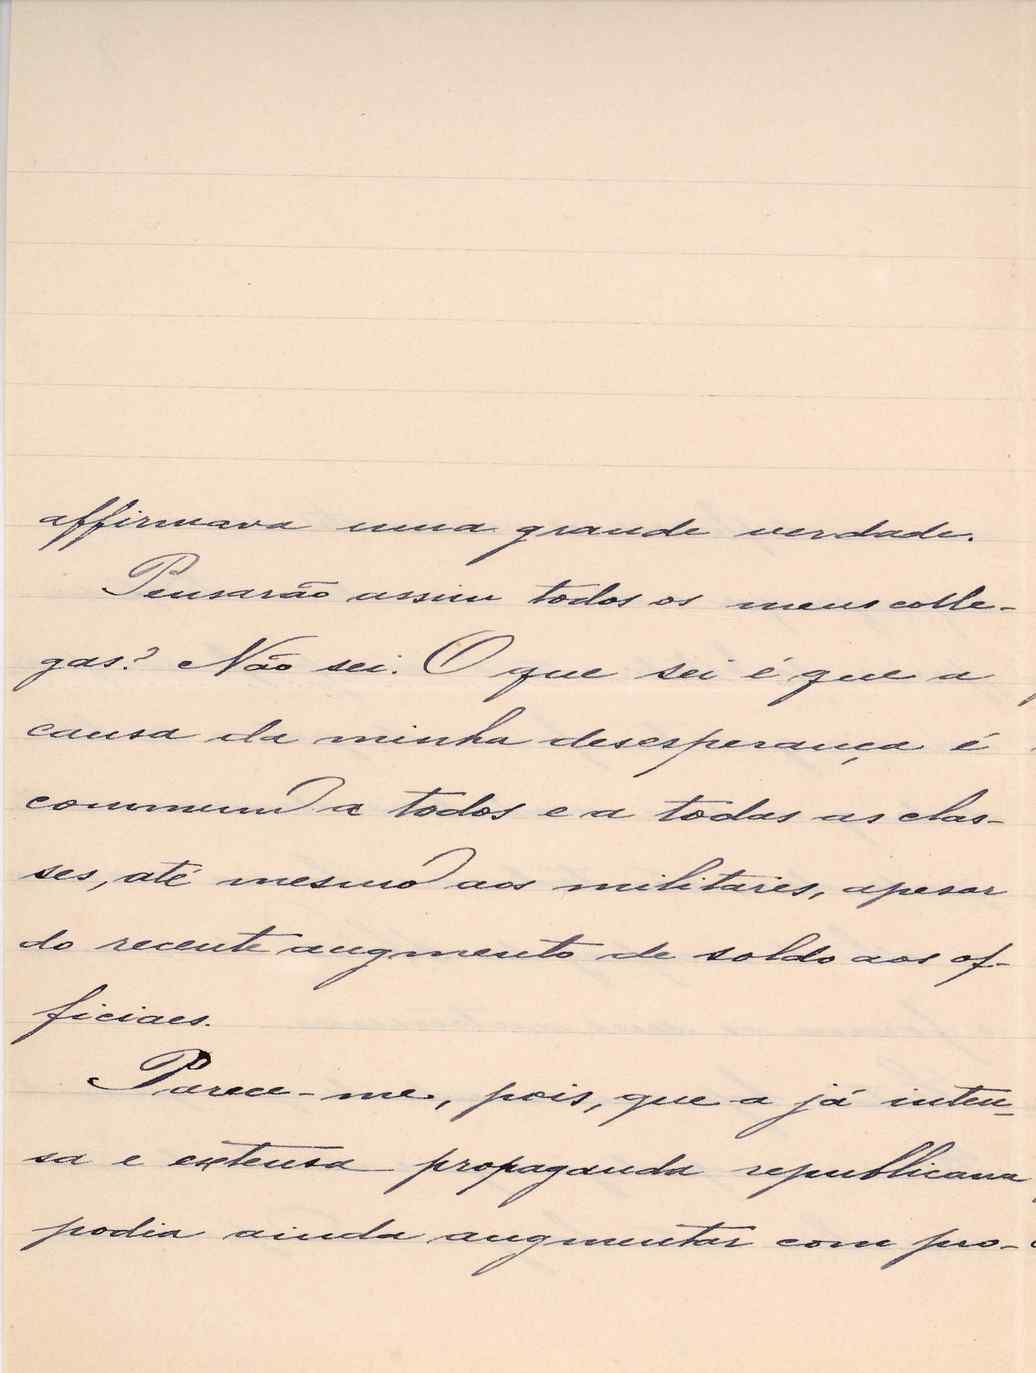 affirmava uma grande verdade.
Pensarão assim todos os meus colle-
gas? Não sei. O que sei é que a
causa da minha desesperança é
commum a todos e a todas as clas-
ses, até mesmo aos militares, apesar
do recente augmento de soldo aos of-
ficiaes.
Parece-me, pois, que a já inten-
sa e extensa propaganda republicana
podia ainda augmentar com pro-